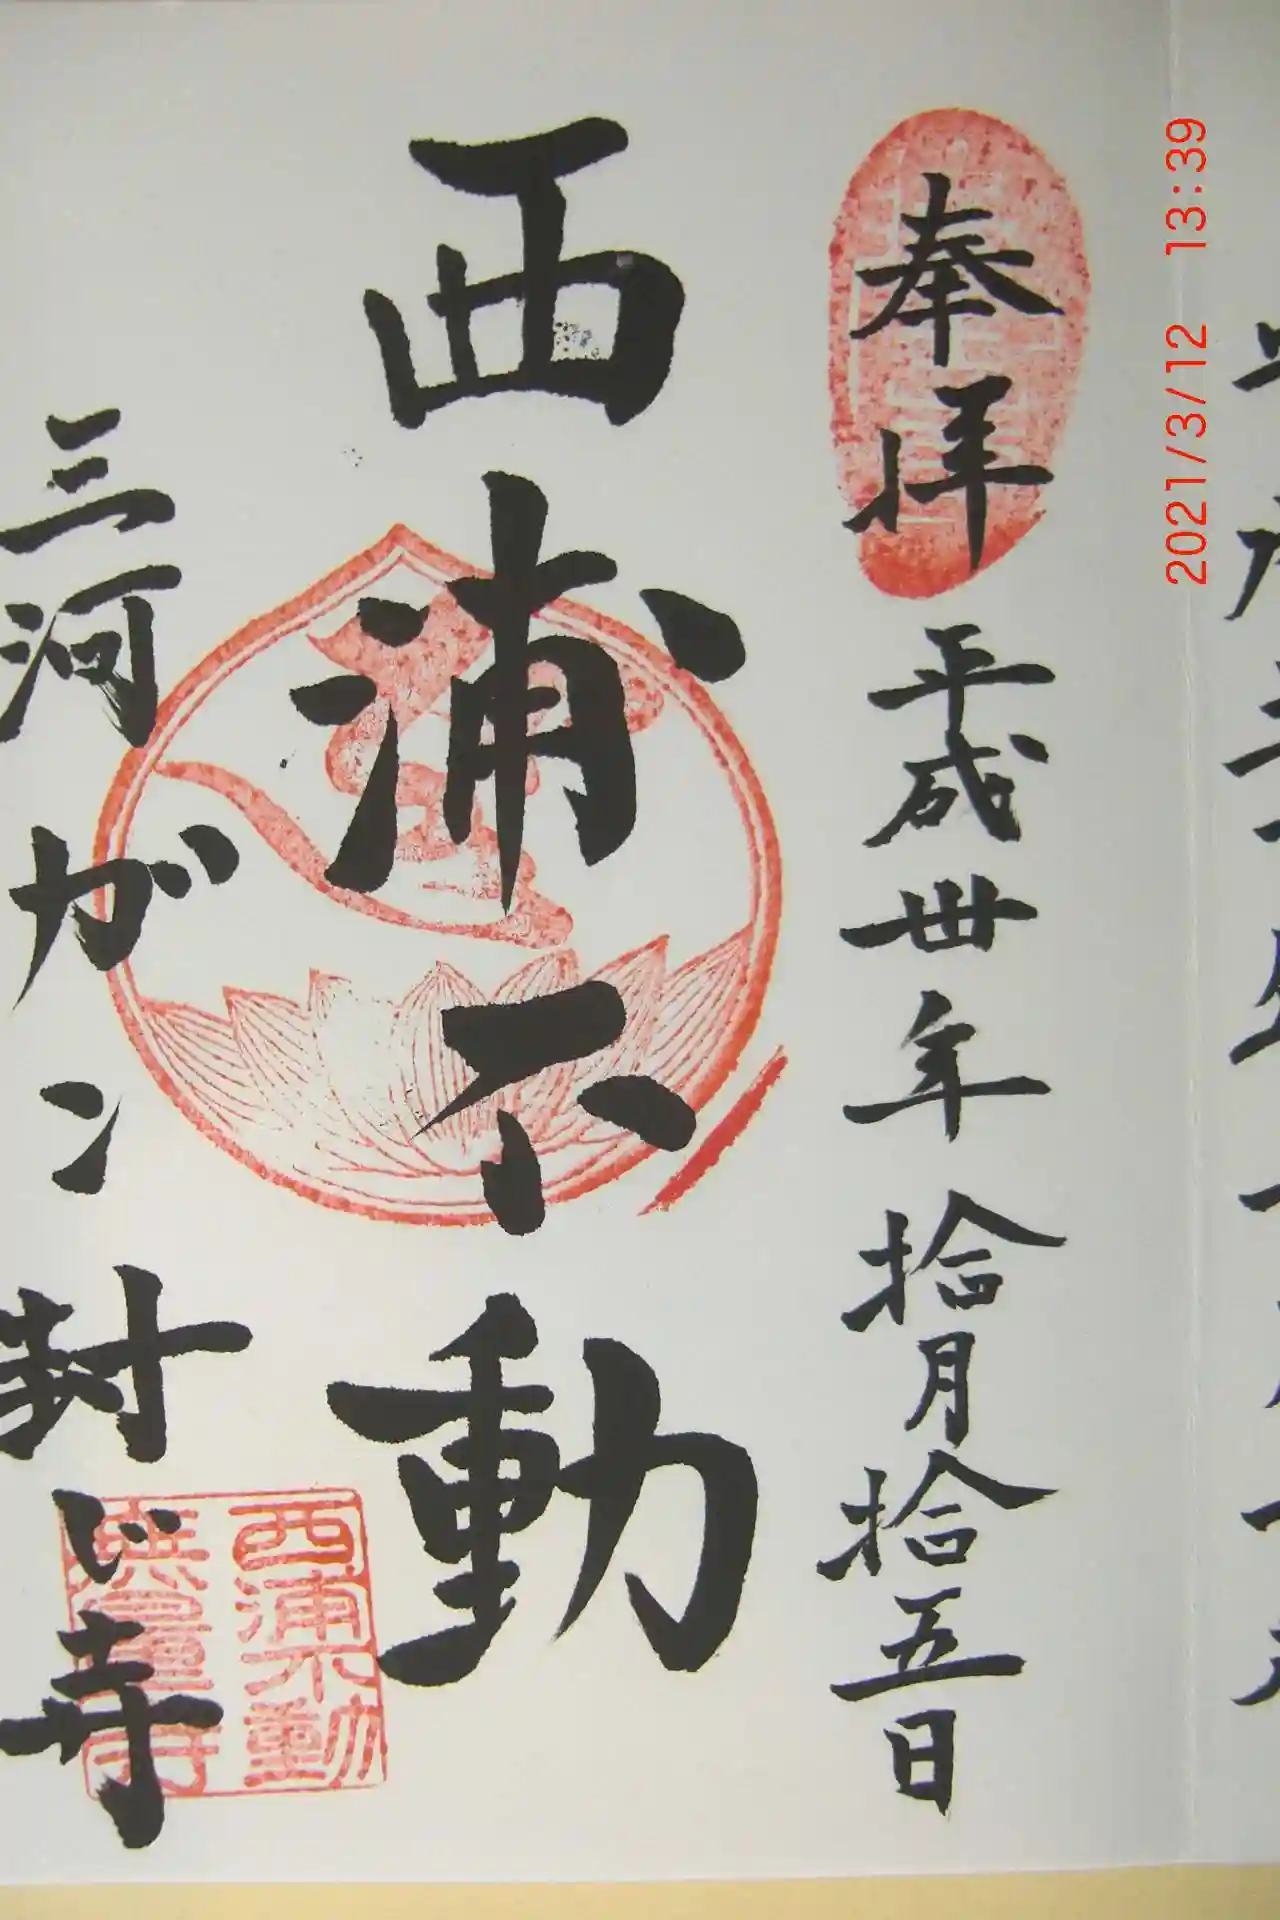 奉拝
平成卅年拾月拾五日
西浦不動
三河ガン封じ寺
西浦不動
無量寺
2021/3/12 13:39